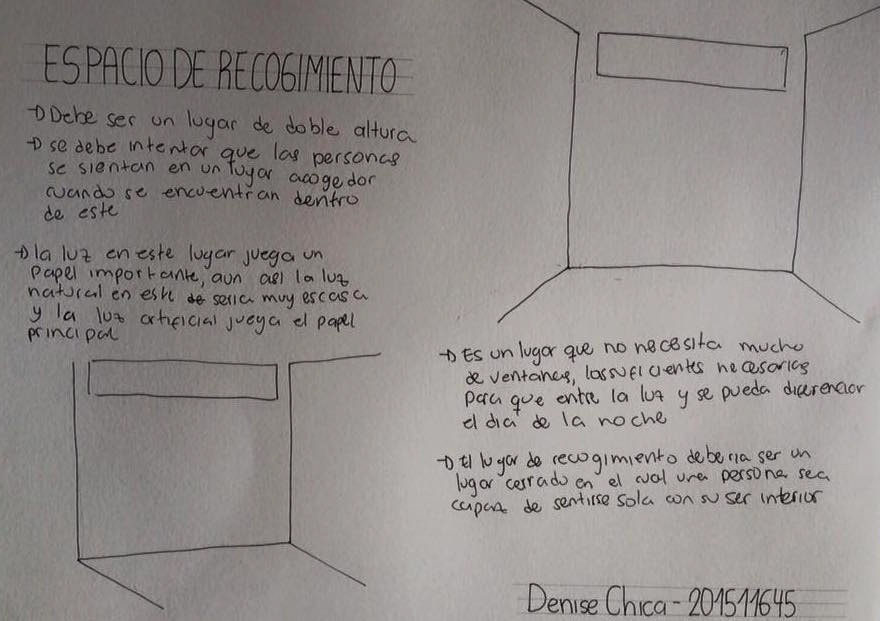 ESPACIO DE RECOGIMIENTO
→ Debe ser un lugar de doble altura
→ se debe intentar que las personas
se sientan en un lugar acogedor
cuando se encuentran dentro
de este
→ la luz en este lugar juega un
papel importante, aun asi la luz
natural en este de seria muy escasa
y la luz artificial juega el papel
principal
→ Es un lugar que no necesita mucho
de ventanas, las suficientes necesarias
para que entre la luz y se pueda diferenciar
el dia de la noche
→ El lugar de recogimiento deberia ser un
lugar cerrado en el cual una persona sea
capaz de sentirse sola con su ser interior
Denise Chica - 201511645